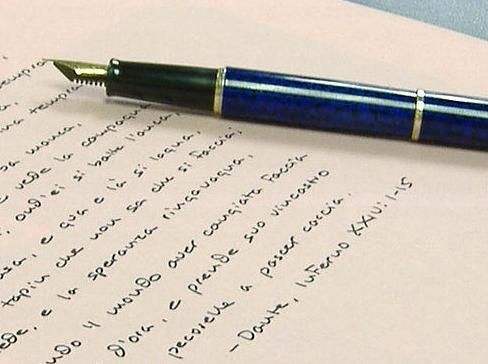 tempra
tempra,
manca,
e vede la campagna
ond'ei si batte l'anca,
e qua e là si lagna,
tapin che non sa che si faccia;
e la speranza ringavagna,
'l mondo aver cangiata faccia
d'ora, e prende suo vincastro
pecorelle a pascer caccia.
- Dante, Inferno XXIV: 1-15